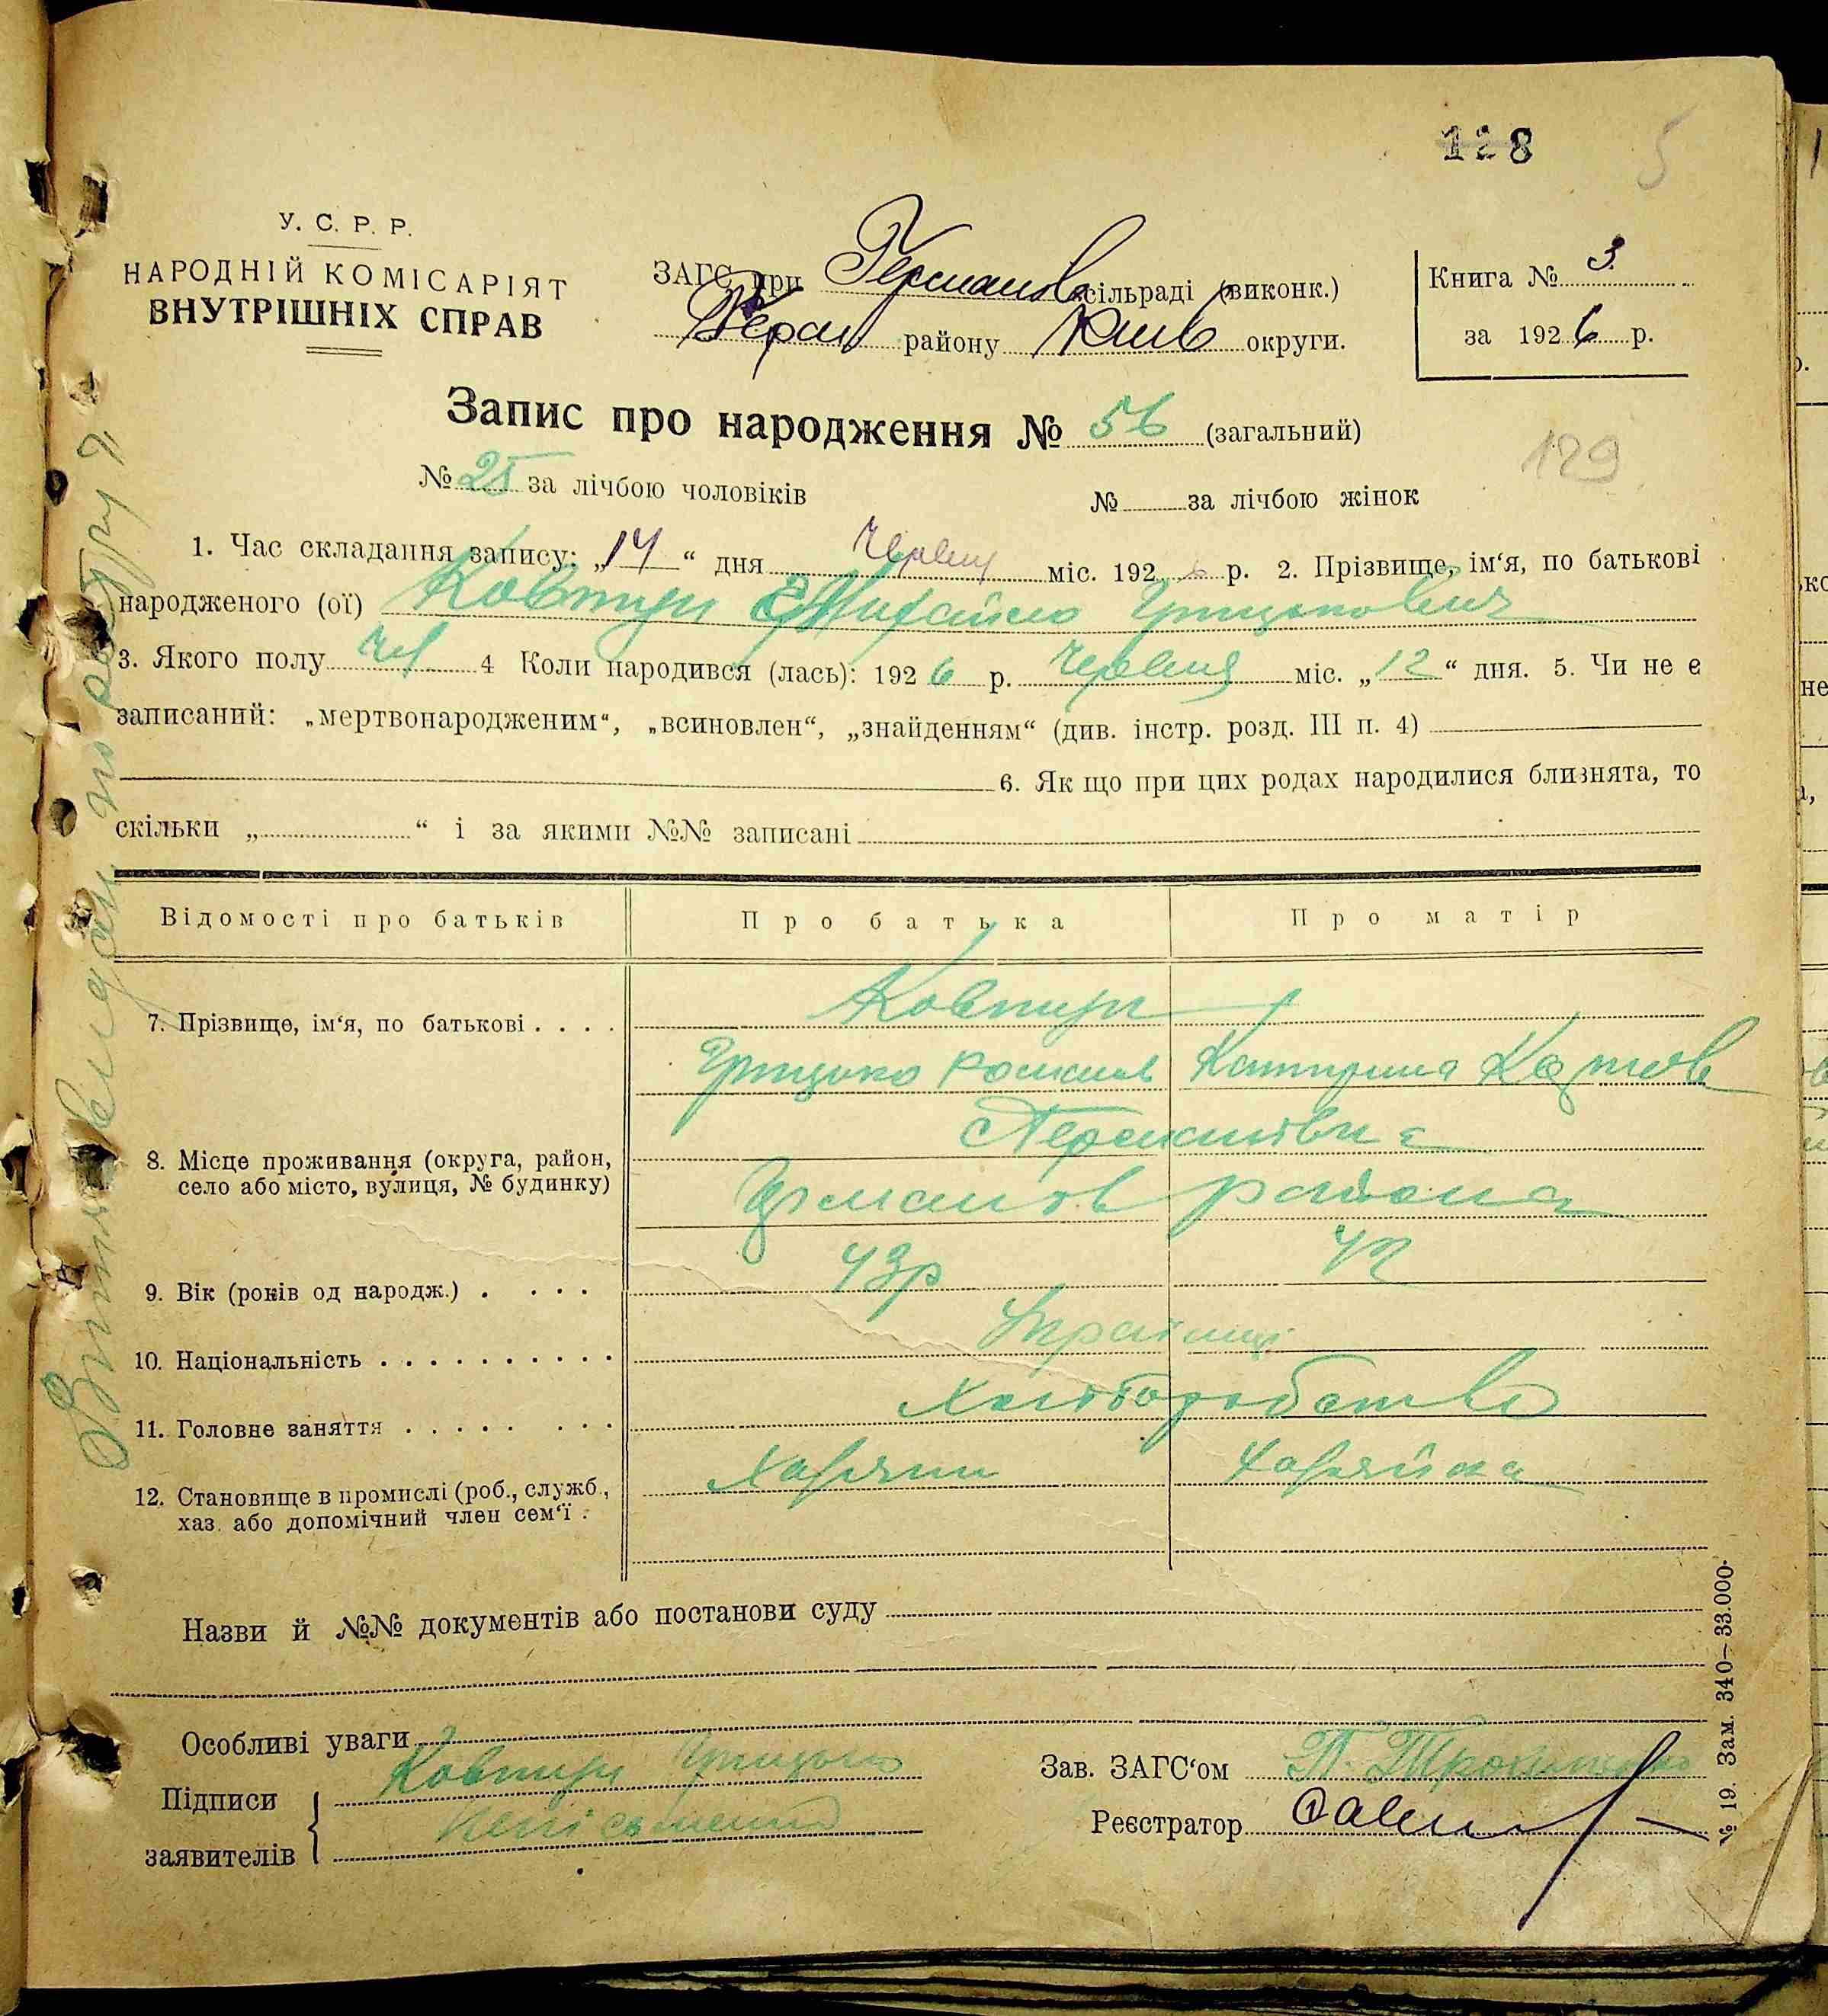 128
5
У. С. Р. Р.
НАРОДНІЙ КОМІСАРІЯТ
ВНУТРІШНІХ СПРАВ
ЗАГС при Германов сільраді (виконк.)
Герм району Київ округи.
Книга № 3.
за 1926 р.
Запис про народження № 56 (загальний)
129
№ 25 за лічбою чоловіків
№ за лічбою жінок
1. Час складання запису: „14“ дня Червня міс. 192 р. 2. Прізвище, ім‘я, по батькові
народженого (ої) Ковтун Михайло Грицькович
3. Якого полу чол 4 Коли народився (лась): 1926 р. Червня міс. „12“ дня. 5. Чи не є
записаний: „мертвонародженим“, „всиновлен“, „знайденням“ (див. інстр. розд. III п. 4)
6. Як що при цих родах народилися близнята, то
скільки „ “ і за якими №№ записані
Відомості про батьків
Про батька
Про матір
7. Прізвище, ім‘я, по батькові . . . .
Ковтун
Грицько Роман
Катерина
8. Місце проживання (округа, район,
село або місто, вулиця, № будинку)
Германівка
району
9. Вік (років од народж.) . . . .
43р
42
10. Національність . . . . . . . . . .
Українці
11. Головне заняття . . . . . . . .
Хліборобство
12. Становище в промислі (роб., служб.,
хаз. або допомічний член сем‘ї .
Хазяїн
Хазяйка
Назви й №№ документів або постанови суду
Особливі уваги
Підписи
заявителів
Ковтун Грицько
неписьменний
Зав. ЗАГС‘ом
Реєстратор
№ 19. Зам. 340—33.000.